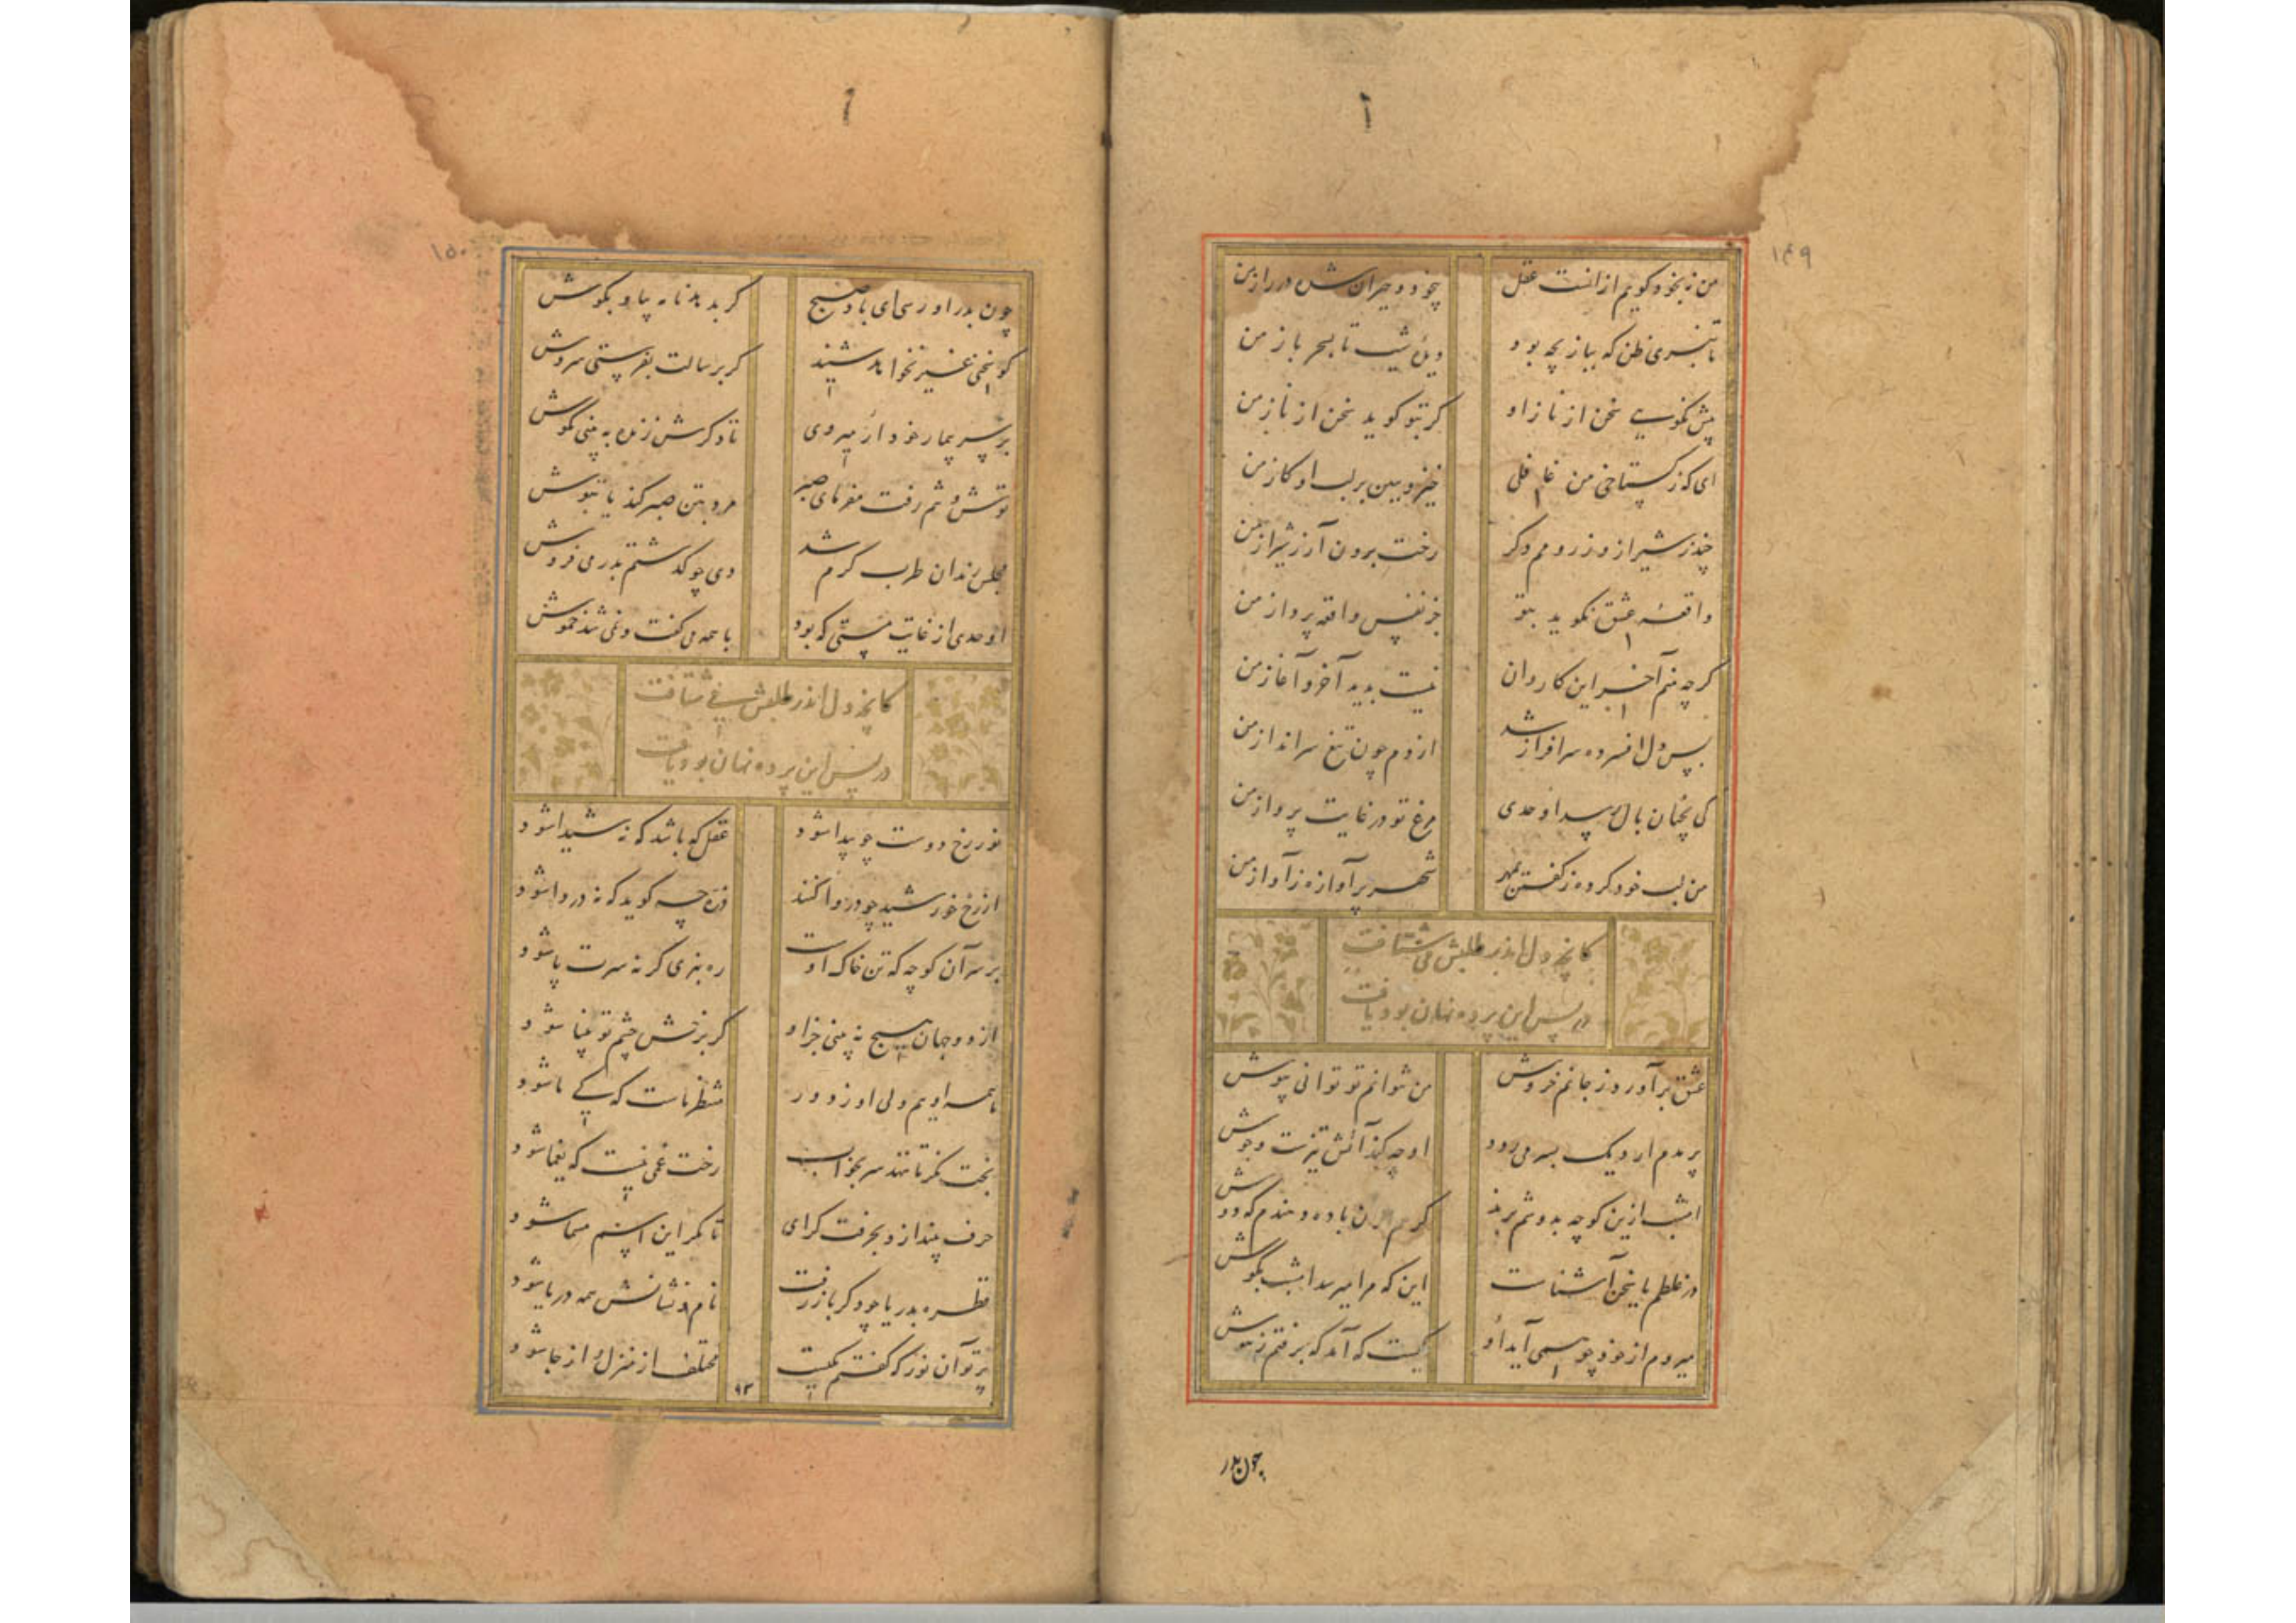 ۱۴۹
من نه بخود گویم ازانست عقل بیخود و حیران شده در راز من
تا نبری ظن که ببازیچه بود دیدهٔ شب تا بسحر باز من
پیش نگویی سخن از ناز او گر بتو گوید سخن از ناز من
ای که ز گستاخی من غافلی خیز و ببین بر لب او گاز من
چند ز شیراز و ز رومم دگر رخت برون آر ز شیراز من
واقعهٔ عشق نگوید بتو جز نفس واقعه پرداز من
گرچه منم آخر این کاروان نیست پدید آخر و آغاز من
بس دل افسرده سرافراز شد از دم چون تیغ سرانداز من
کی بچنان بال رسد اوحدی مرغ تو در غایت پرواز من
من لب خود کرده ز گفتن بمهر شهر پرآوازه ز آواز من
کانچه دل اندر طلبش می شتافت
در پس این پرده نهان بود یافت
عشق برآورد ز جانم خروش من نتوانم تو توانی بپوش
پر بدم ار دیک بسر می رود او چه کند آتش تیزست و جوش
امشب ازین کوچه بدوشم برند گر هم ازان باده دهندم که دوش
در غلطم یا سخن آشناست این که مرا میرسد امشب بگوش
میروم از خود چو همی آید او کیست که آمد که برفتم ز هوش
چون بدر
۱۵۰
چون بدر او رسی ای باد صبح گر بدهد نانه پیاو بگوش
کو سخن غیر نخواهد شنید گر برسالت بفرستی سروش
بر سر بیمار خود ار میروی تا دگرش زنده ببینی بکوش
توش و توم رفت مفرمای صبر مرد بتن صبر کند یا بتوش
مجلس رندان طرب گرم شد دی چو گذشتم بدر می فروش
اوحدی از غایت مستی که بود با همه می گفت و نمی شد خموش
کانچه دل اندر طلبش می شتافت
در پس این پرده نهان بود یافت
نور رخ دوست چو پیدا شود عقل که باشد که نه شیدا شود
از رخ خورشید چو در وا کند ذره چه گوید که نه دروا شود
بر سر آن کوچه که تن خاک اوست ره نبری گر نه سرت پا شود
از دو جهان هیچ نبینی جز او گر برخش چشم تو بینا شود
ما همه اوییم ولی او ز دور منتظر ماست که کی ما شود
بخت نگر تا ننهد سر بخواب رخت غمی نیست که یغما شود
حرف بینداز و بحرفت گرای تا مگر این اسم مسما شود
قطره بدریا چو دگر باز رفت نام و نشانش همه دریا شود
پرتو آن نور که گفتم یکیست مختلف از منزل و از جا شود
۹۳